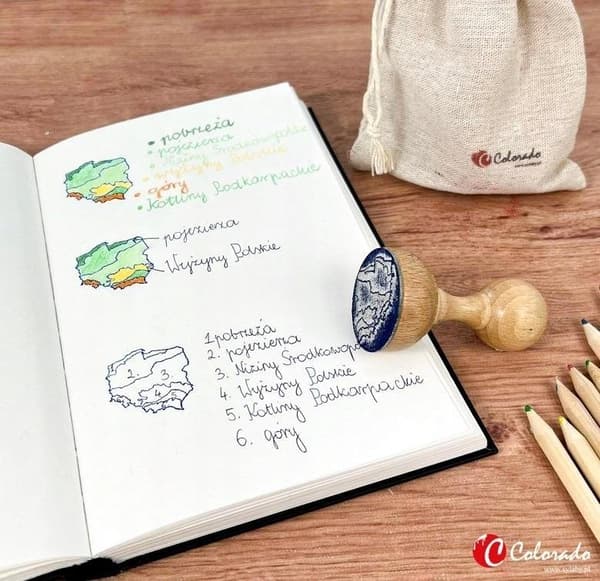 • pobrzeża
• pojezierza
• Niziny Środkowopolskie
• wyżyny Polskie
• góry
• Kotliny Podkarpackie
pojezierza
Wyżyny Polskie
1 pobrzeża
2. pojezierza
3. Niziny Środkowopo
4. Wyżyny Polskie
5. Kotliny Podkarpackie
6. góry
1.
2.
3.
4.
Colorado
Colorado
www.sylaby.pl